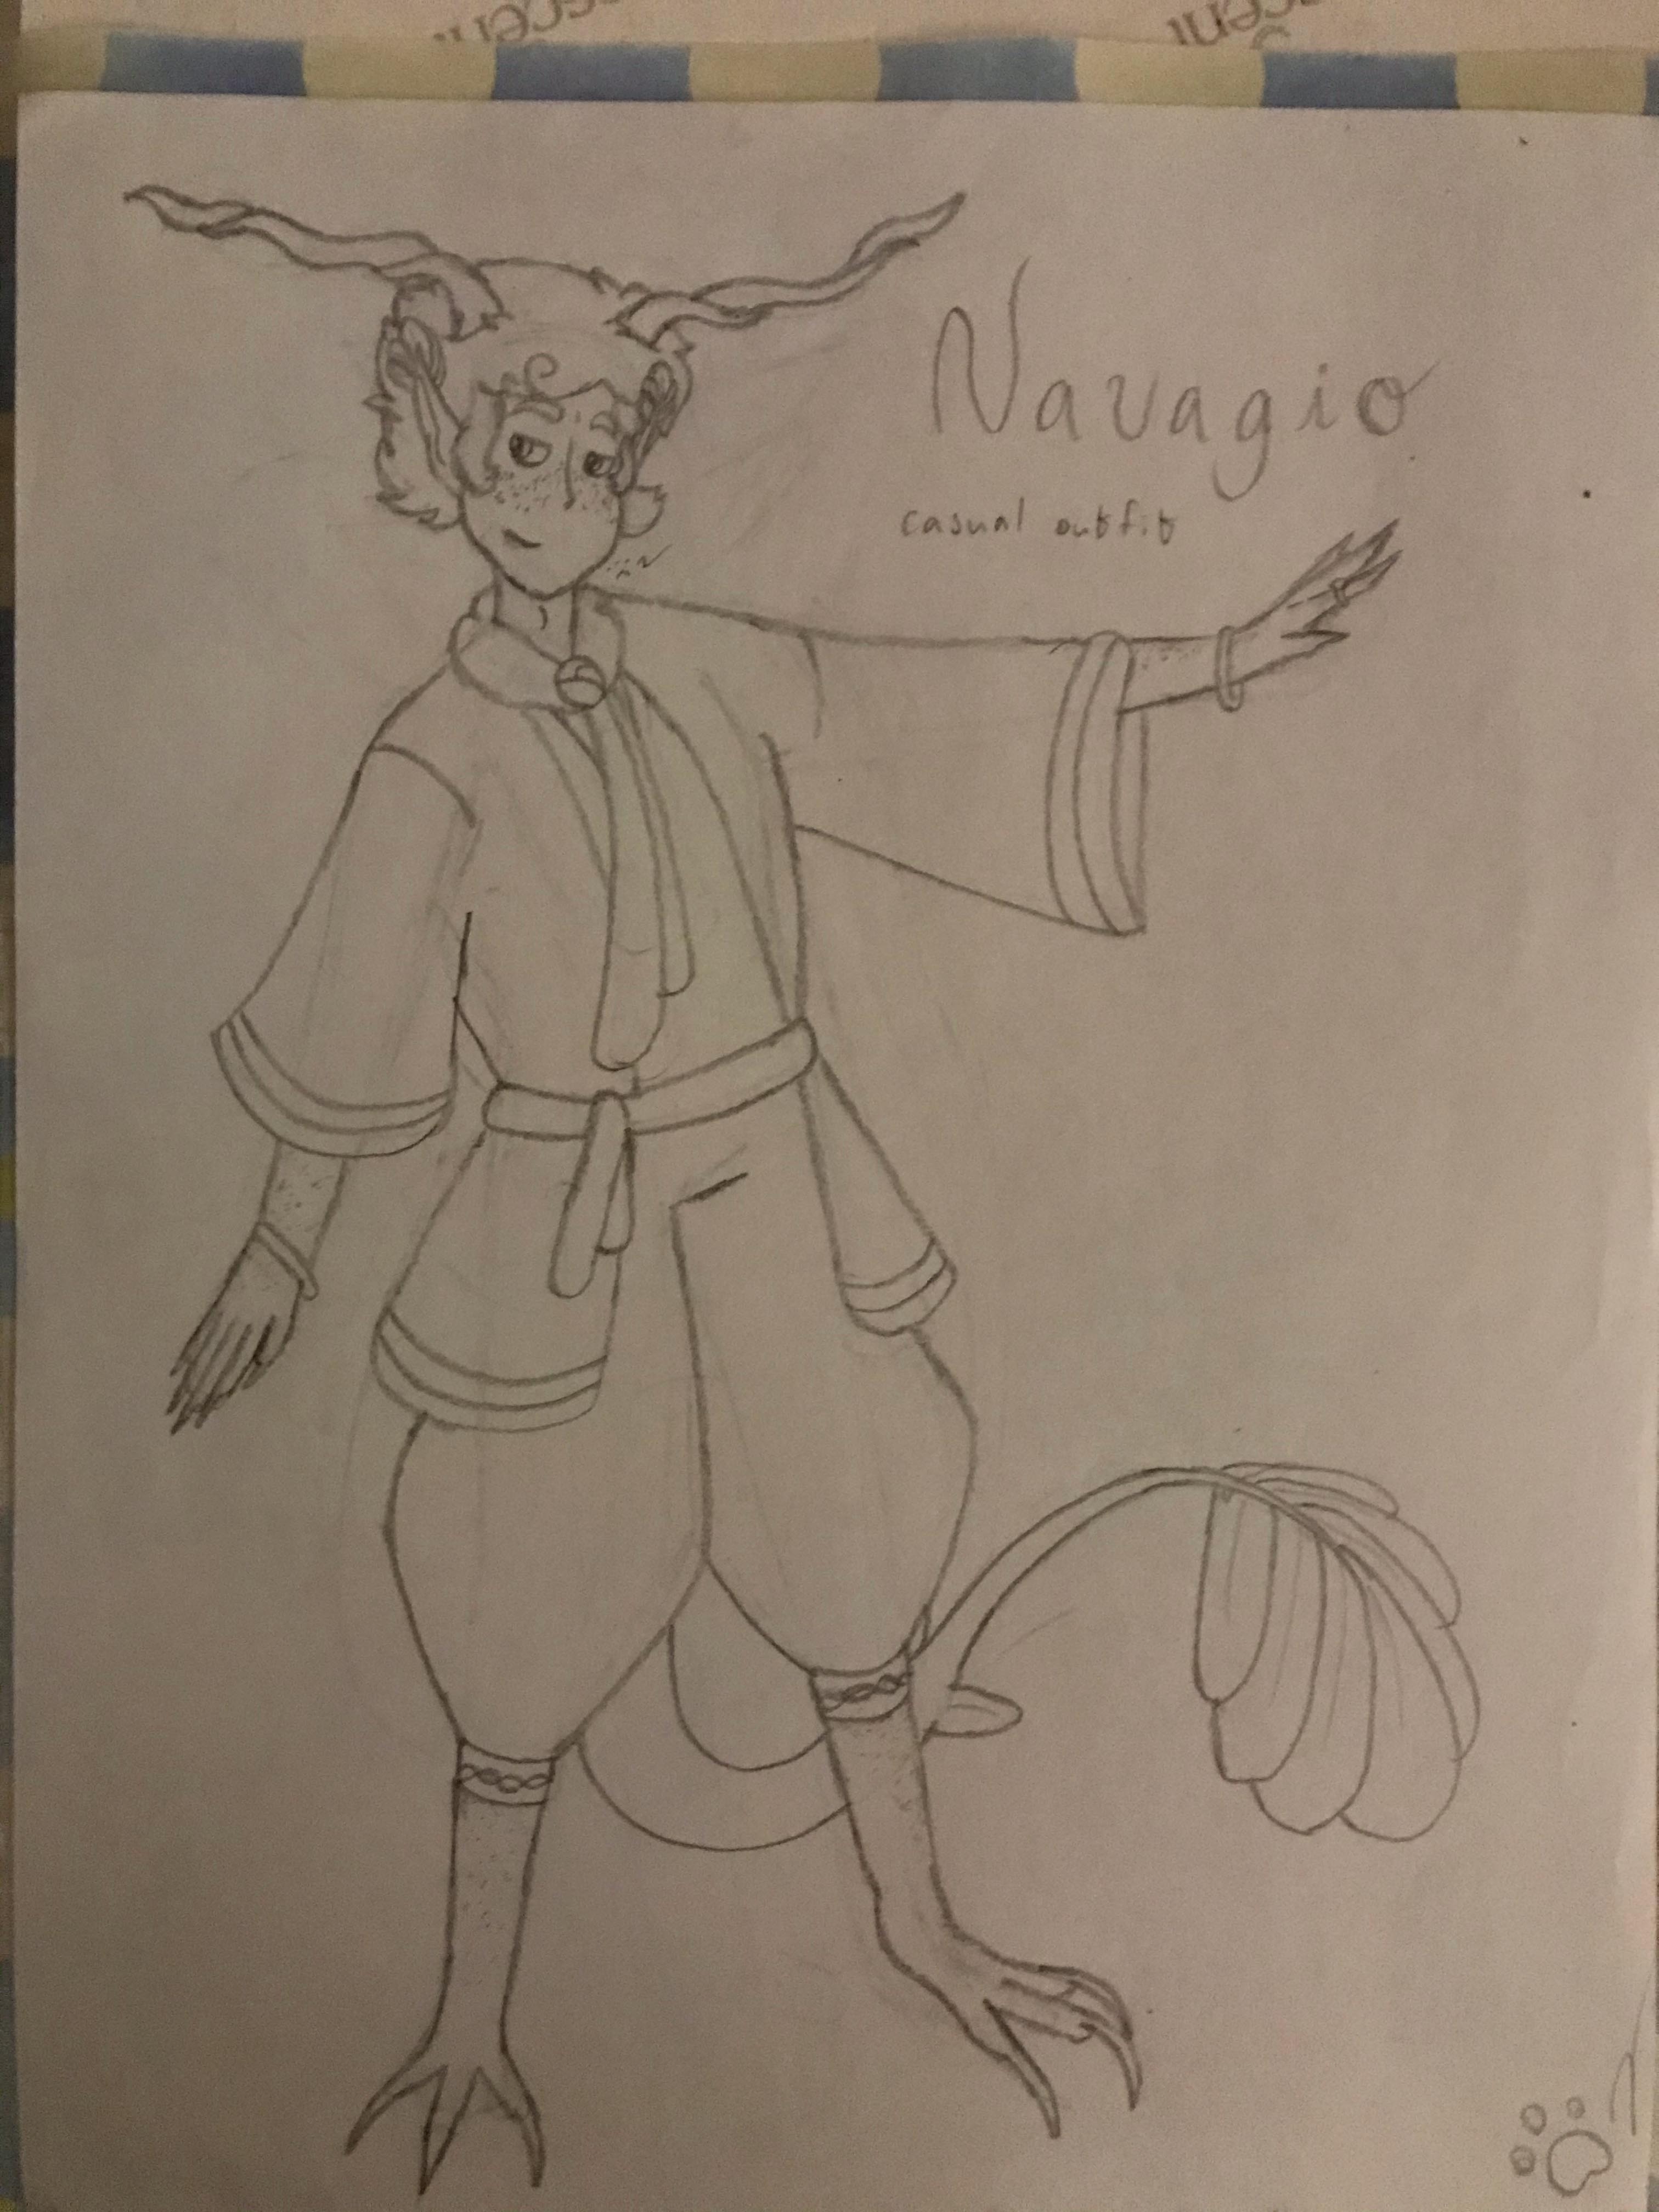 Navagio
casual outfit